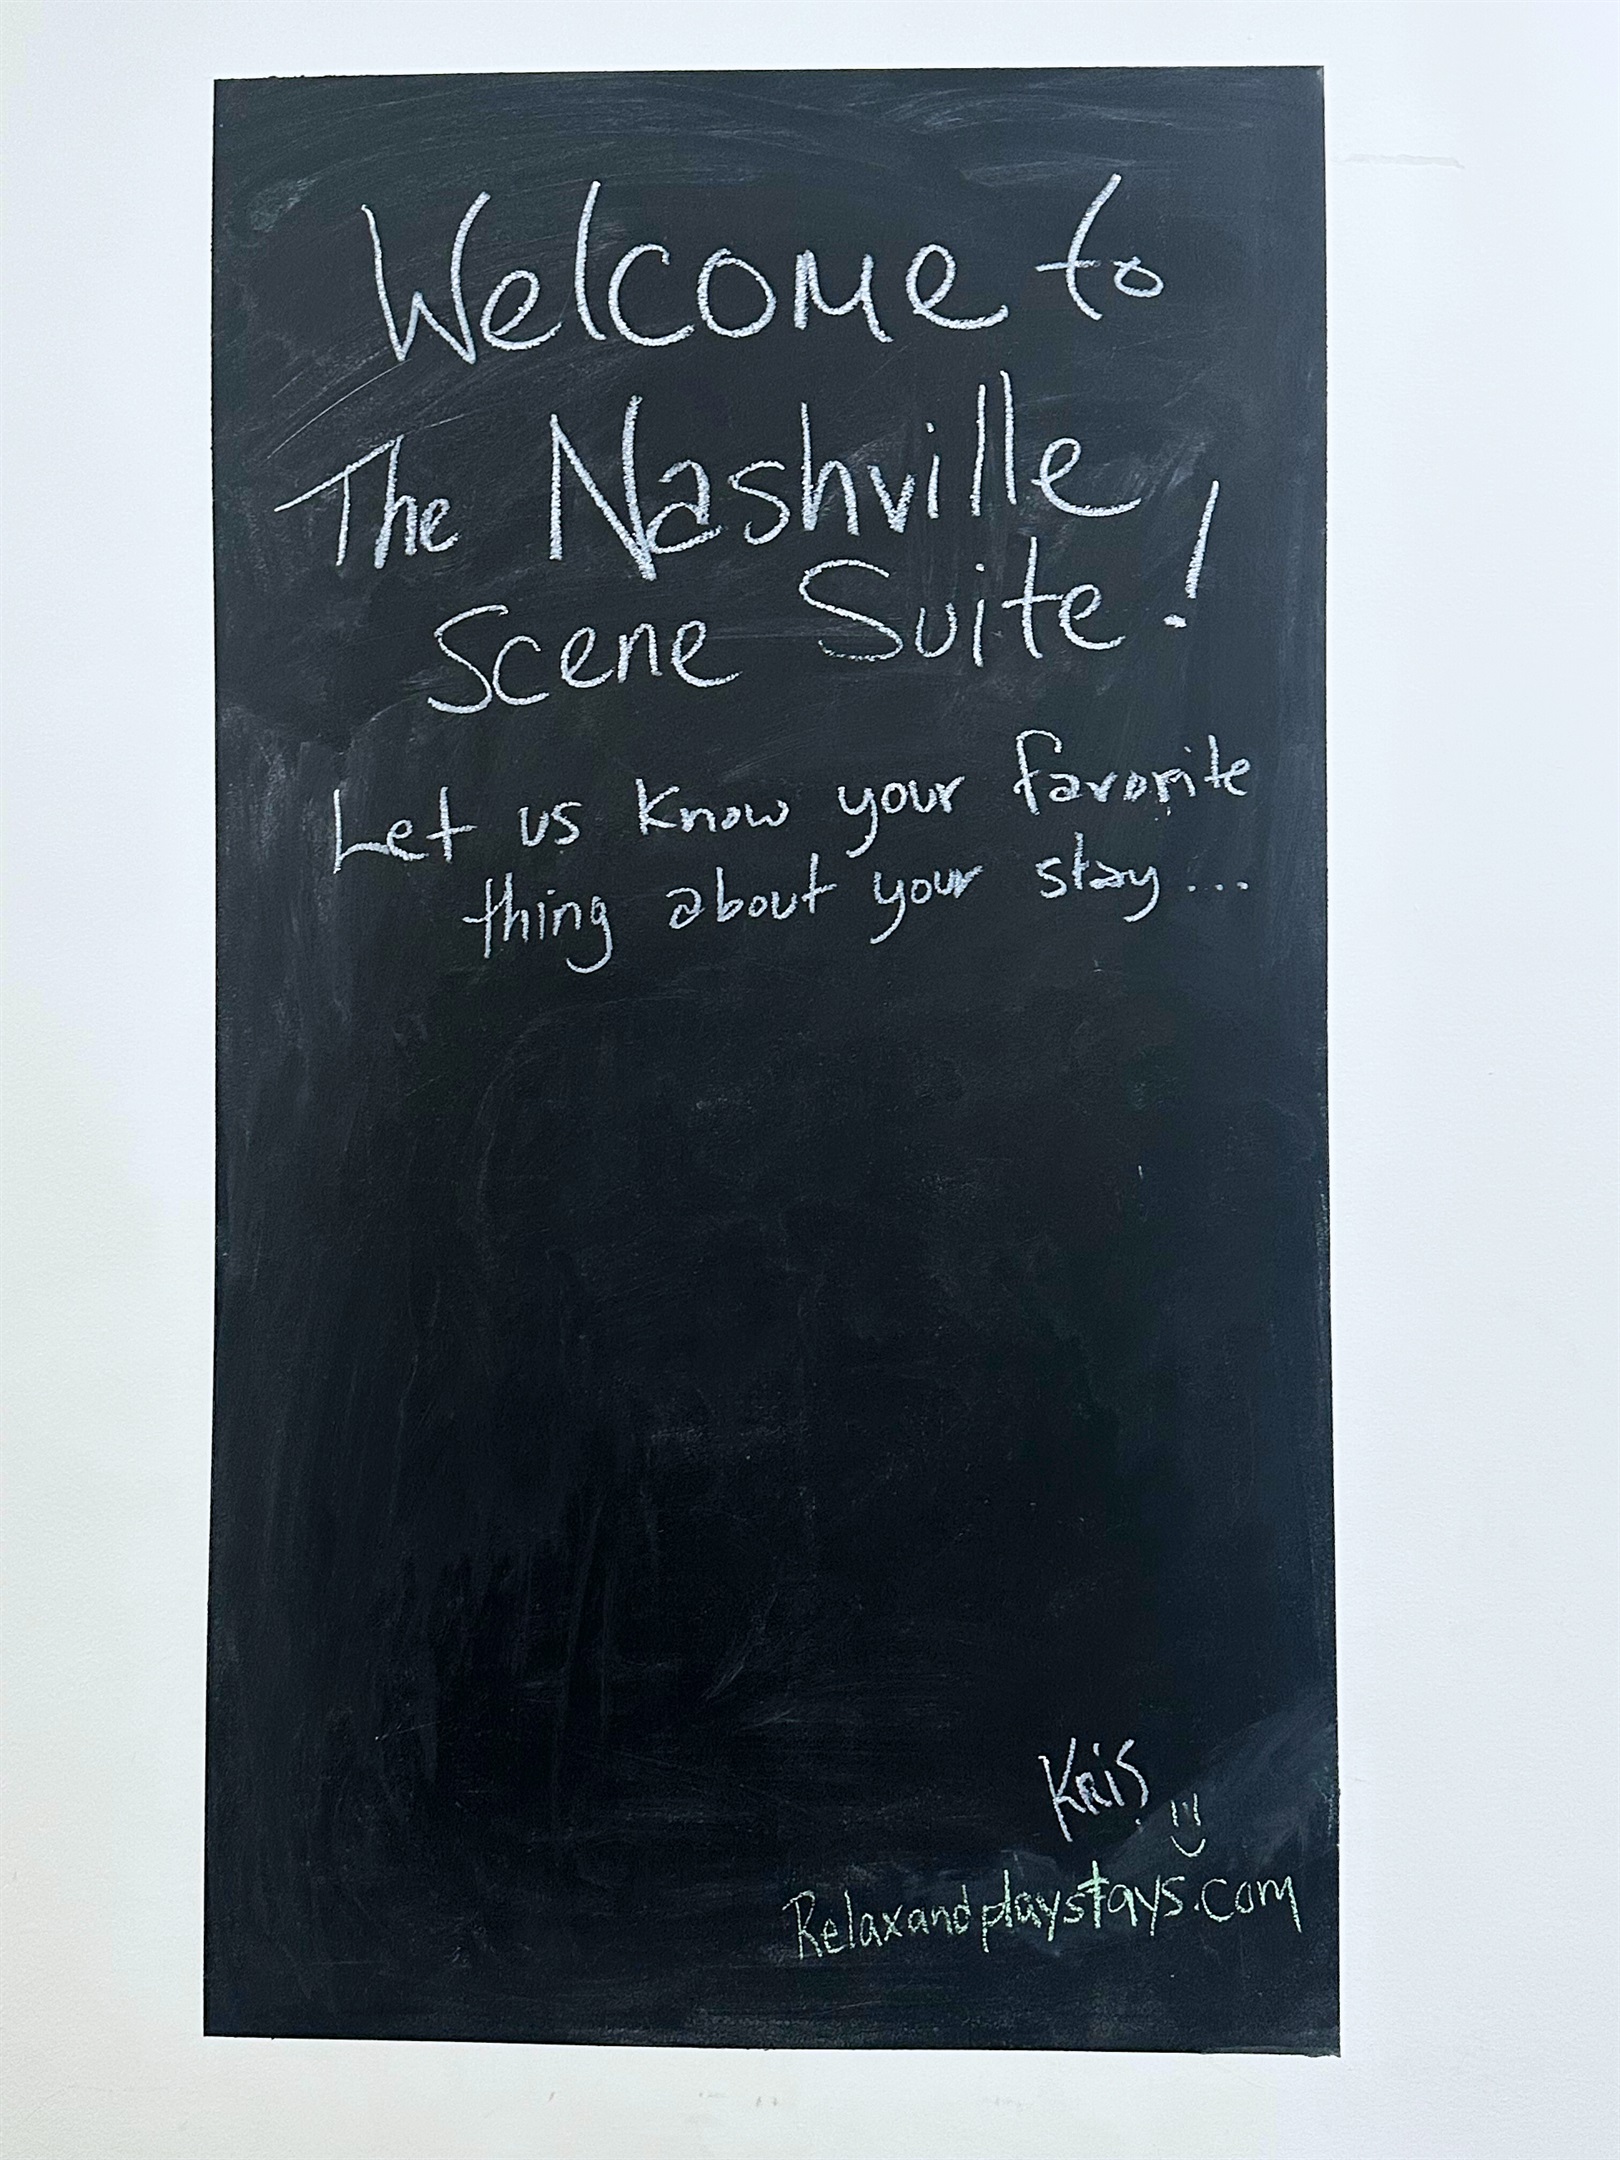 Welcome to
The Nashville
Scene Suite!
Let us know your favorite
thing about your stay...
Kris
Relaxandplaystays.com